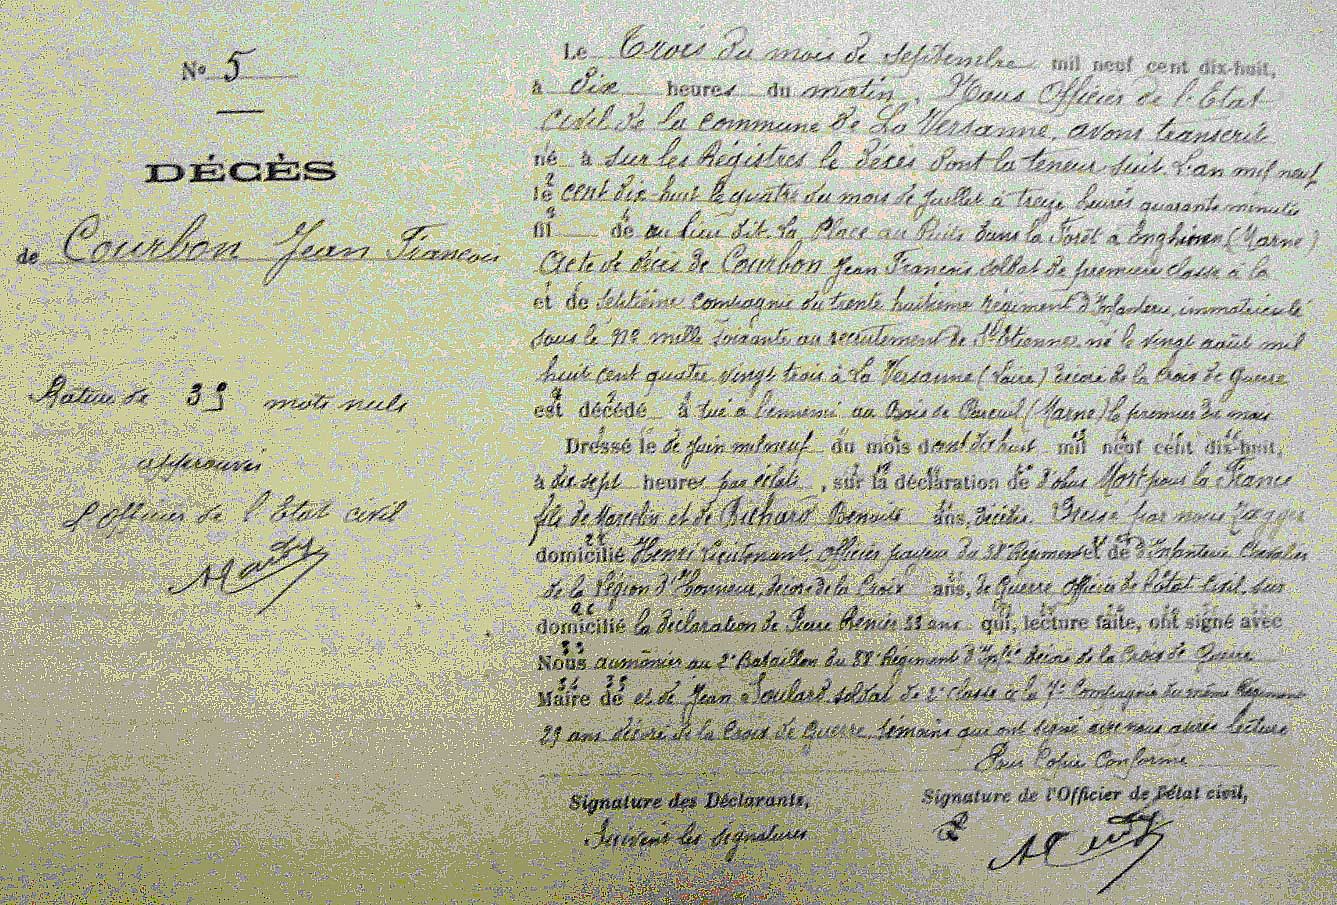 N° 5
DÉCÈS
de Courbon Jean François
Rature de 39 mots nuls
approuvés
L'officier de l'Etat civil
Le Trois du mois de septembre mil neuf cent dix-huit,
à dix heures du matin, Nous Officier de l'Etat
Civil de la commune de La Versanne, avons transcrit
né à sur les Régistres le décès dont la teneur suit. L'an mil neuf
le cent dix-huit le quatre du mois de Juillet à treize heures quarante minutes
fil de au lieu dit La Place au Puits dans la Forêt à (Marne)
Acte de décès de Courbon Jean François soldat de premiere classe à la
et de septième compagnie du trente huitième régiment d'Infanterie, immatriculé
sous le N° mille soixante au recrutement de St Etienne, né le vingt août mil
huit cent quatre vingt trois à La Versanne (Loire) décoré de la Croix de Guerre
est décédé à tué à l'ennemi au Bois de (Marne) le premier du mois
Dressé le de Juin mil neuf du mois d cent dix huit mil neuf cent dix-huit,
à dix sept heures par éclats, sur la déclaration de d'obus Mort pour la France
fils de Marcelin et de Richard Benoite ans, décédée Dressé par nous
domicilié Henri Lieutenant Officier payeur du 38e Régiment et de d'Infanterie Chevalier
de la Légion d'Honneur, décoré de la Croix ans, de Guerre Officier de l'Etat Civil, sur
domicilié la déclaration de Pierre 33 ans qui, lecture faite, ont signé avec
Nous aumônier au 2e Bataillon du 38e Régiment d'Inf.ie décoré de la Croix de Guerre
Maire de et de Jean Soulard soldat de 2e classe à la 7e Compagnie du même Régiment
29 ans décoré de la Croix de Guerre, témoins qui ont signé avec nous après lecture
Pour Copie Conforme
Signature des Déclarants,
Signature de l'Officier de l'état civil,
Suivent les signatures